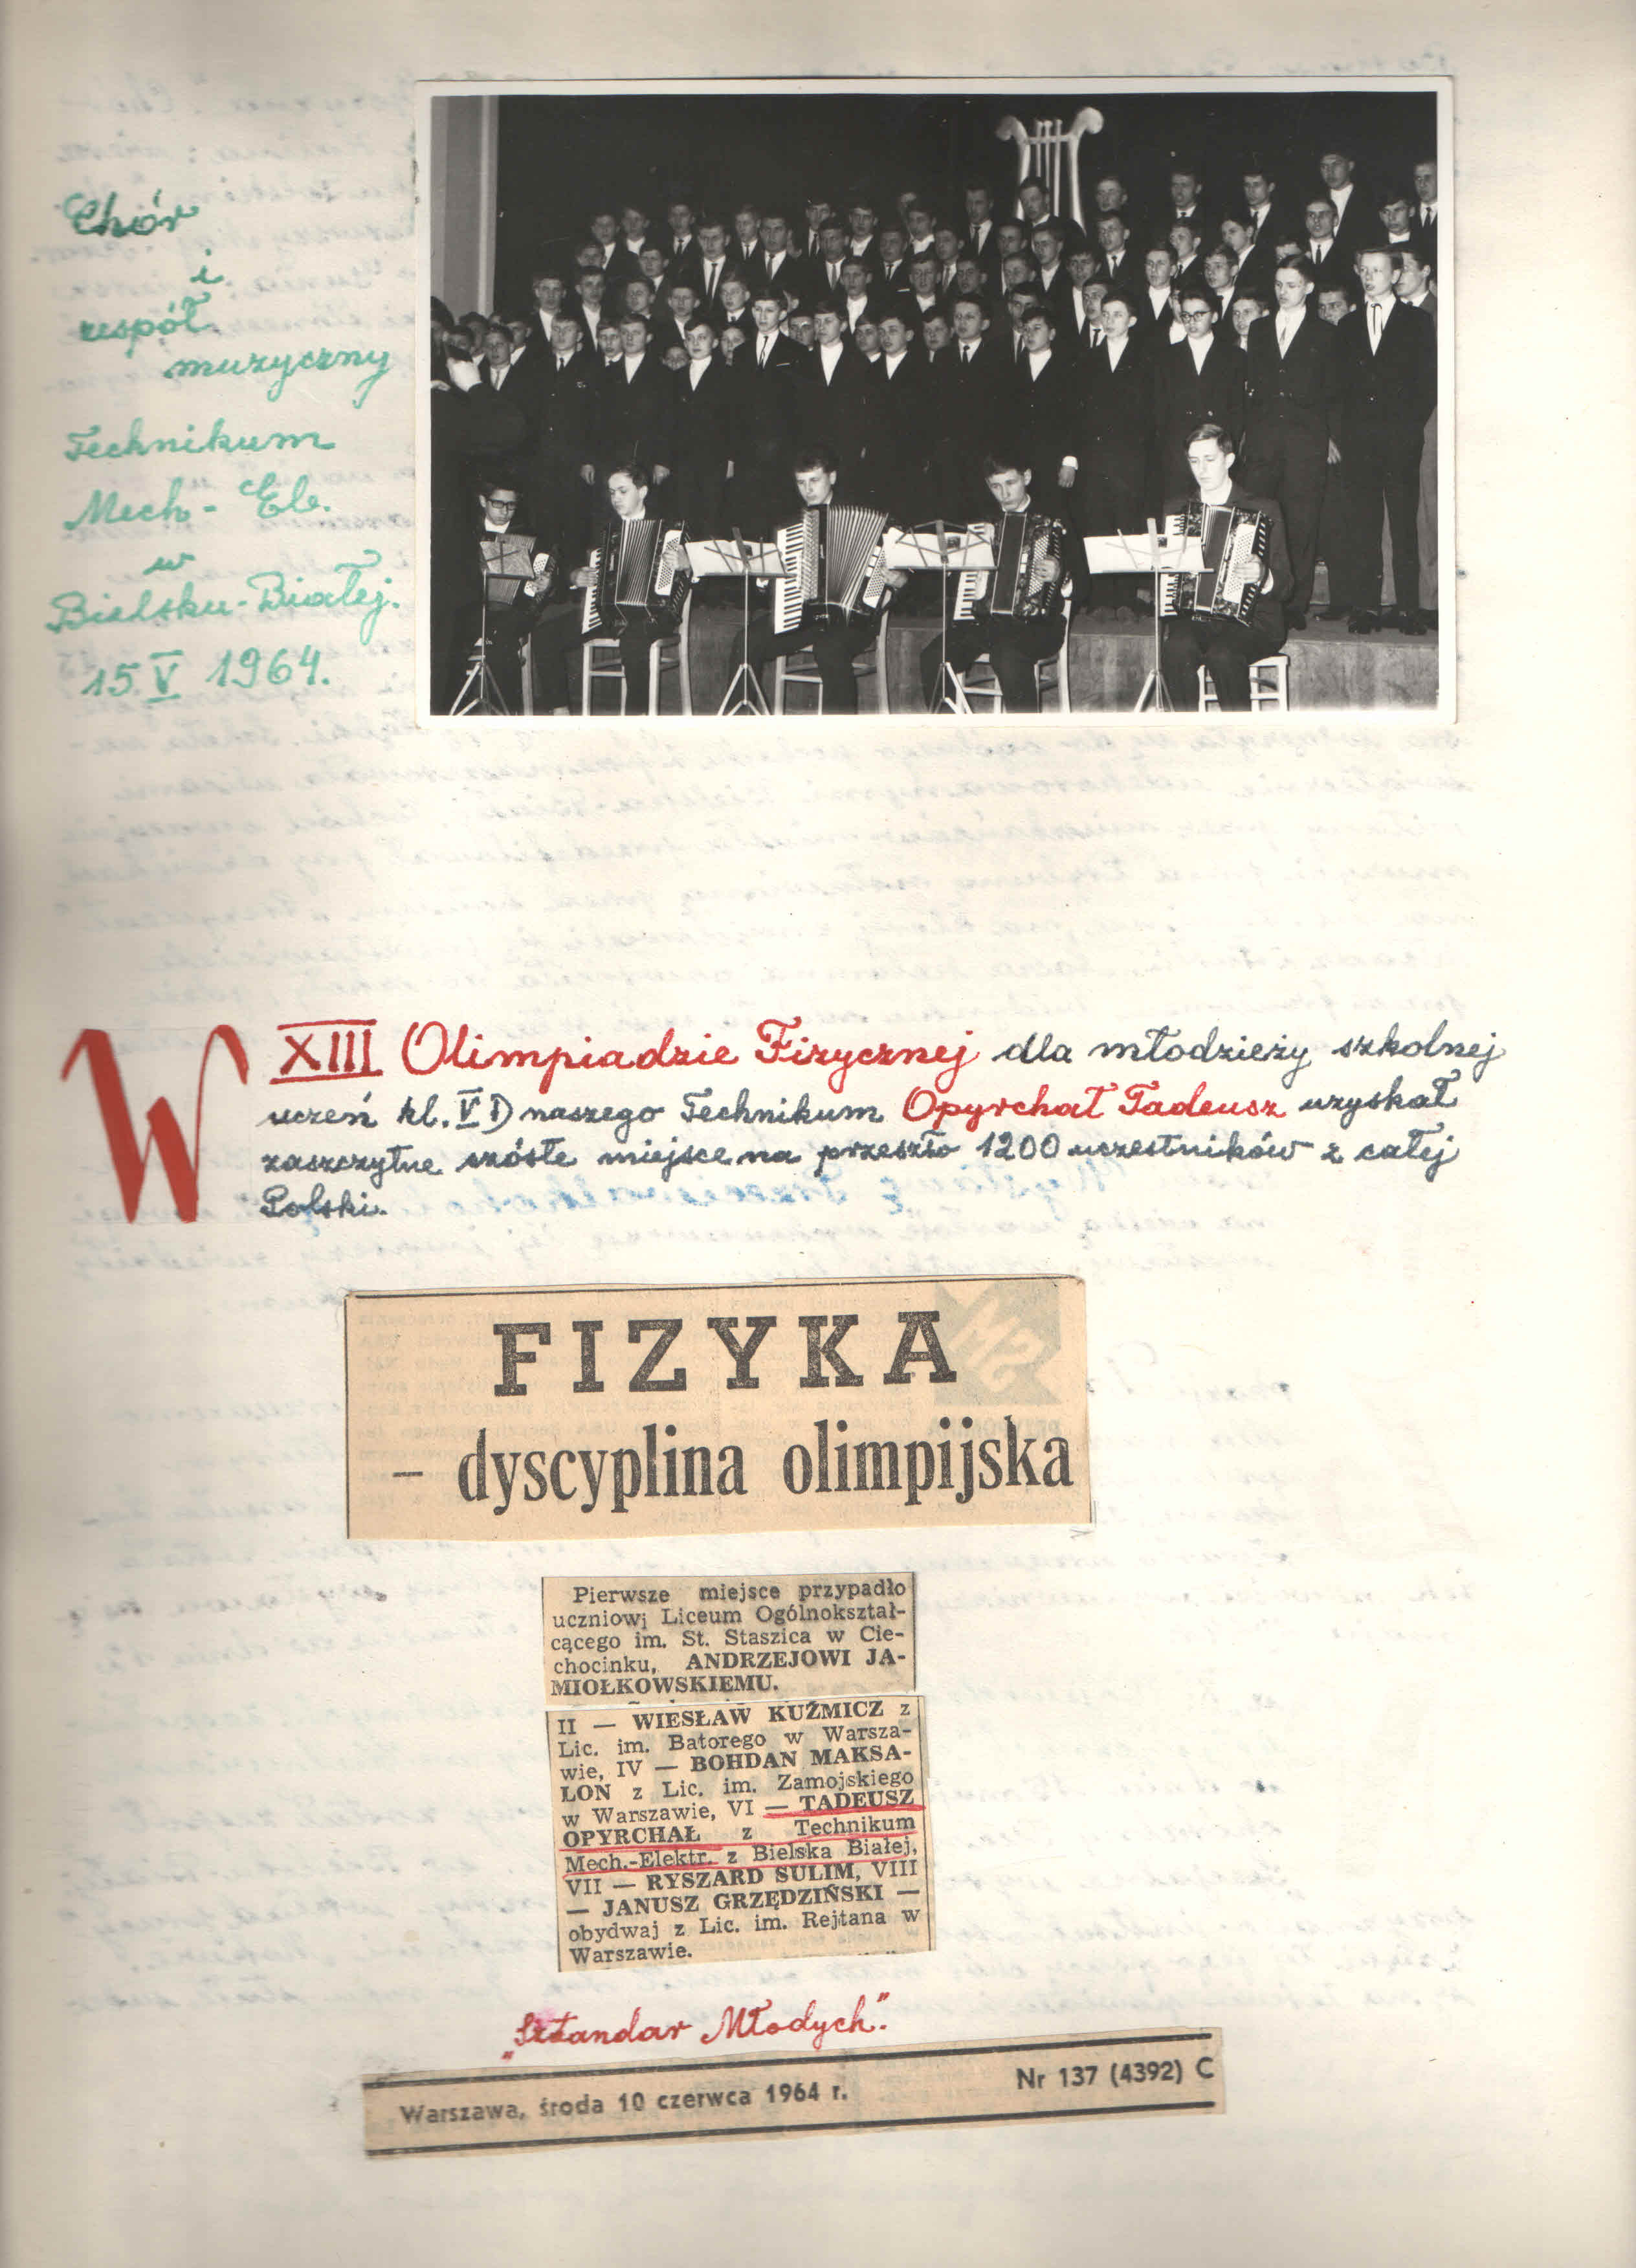 Chór
i
zespół
muzyczny
Technikum
Mech-Ele.
w
Bielsku-Białej.
15 V 1964.
W XIII Olimpiadzie Fizycznej dla młodzieży szkolnej
uczeń kl. V D naszego Technikum Opyrchał Tadeusz uzyskał
zaszczytne szóste miejsce na przeszło 1200 uczestników z całej
Polski.
FIZYKA
– dyscyplina olimpijska
Pierwsze miejsce przypadło
uczniowj Liceum Ogólnokształ-
cącego im. St. Staszica w Cie-
chocinku, ANDRZEJOWI JA-
MIOŁKOWSKIEMU.
II — WIESŁAW KUŹMICZ z
Lic. im. Batorego w Warsza-
wie, IV — BOHDAN MAKSA-
LON z Lic. im. Zamojskiego
w Warszawie, VI — TADEUSZ
OPYRCHAŁ z Technikum
Mech.-Elektr. z Bielska Białej,
VII — RYSZARD SULIM, VIII
— JANUSZ GRZĘDZIŃSKI —
obydwaj z Lic. im. Rejtana w
Warszawie.
„Sztandar Młodych".
Warszawa, środa 10 czerwca 1964 r. Nr 137 (4392) C